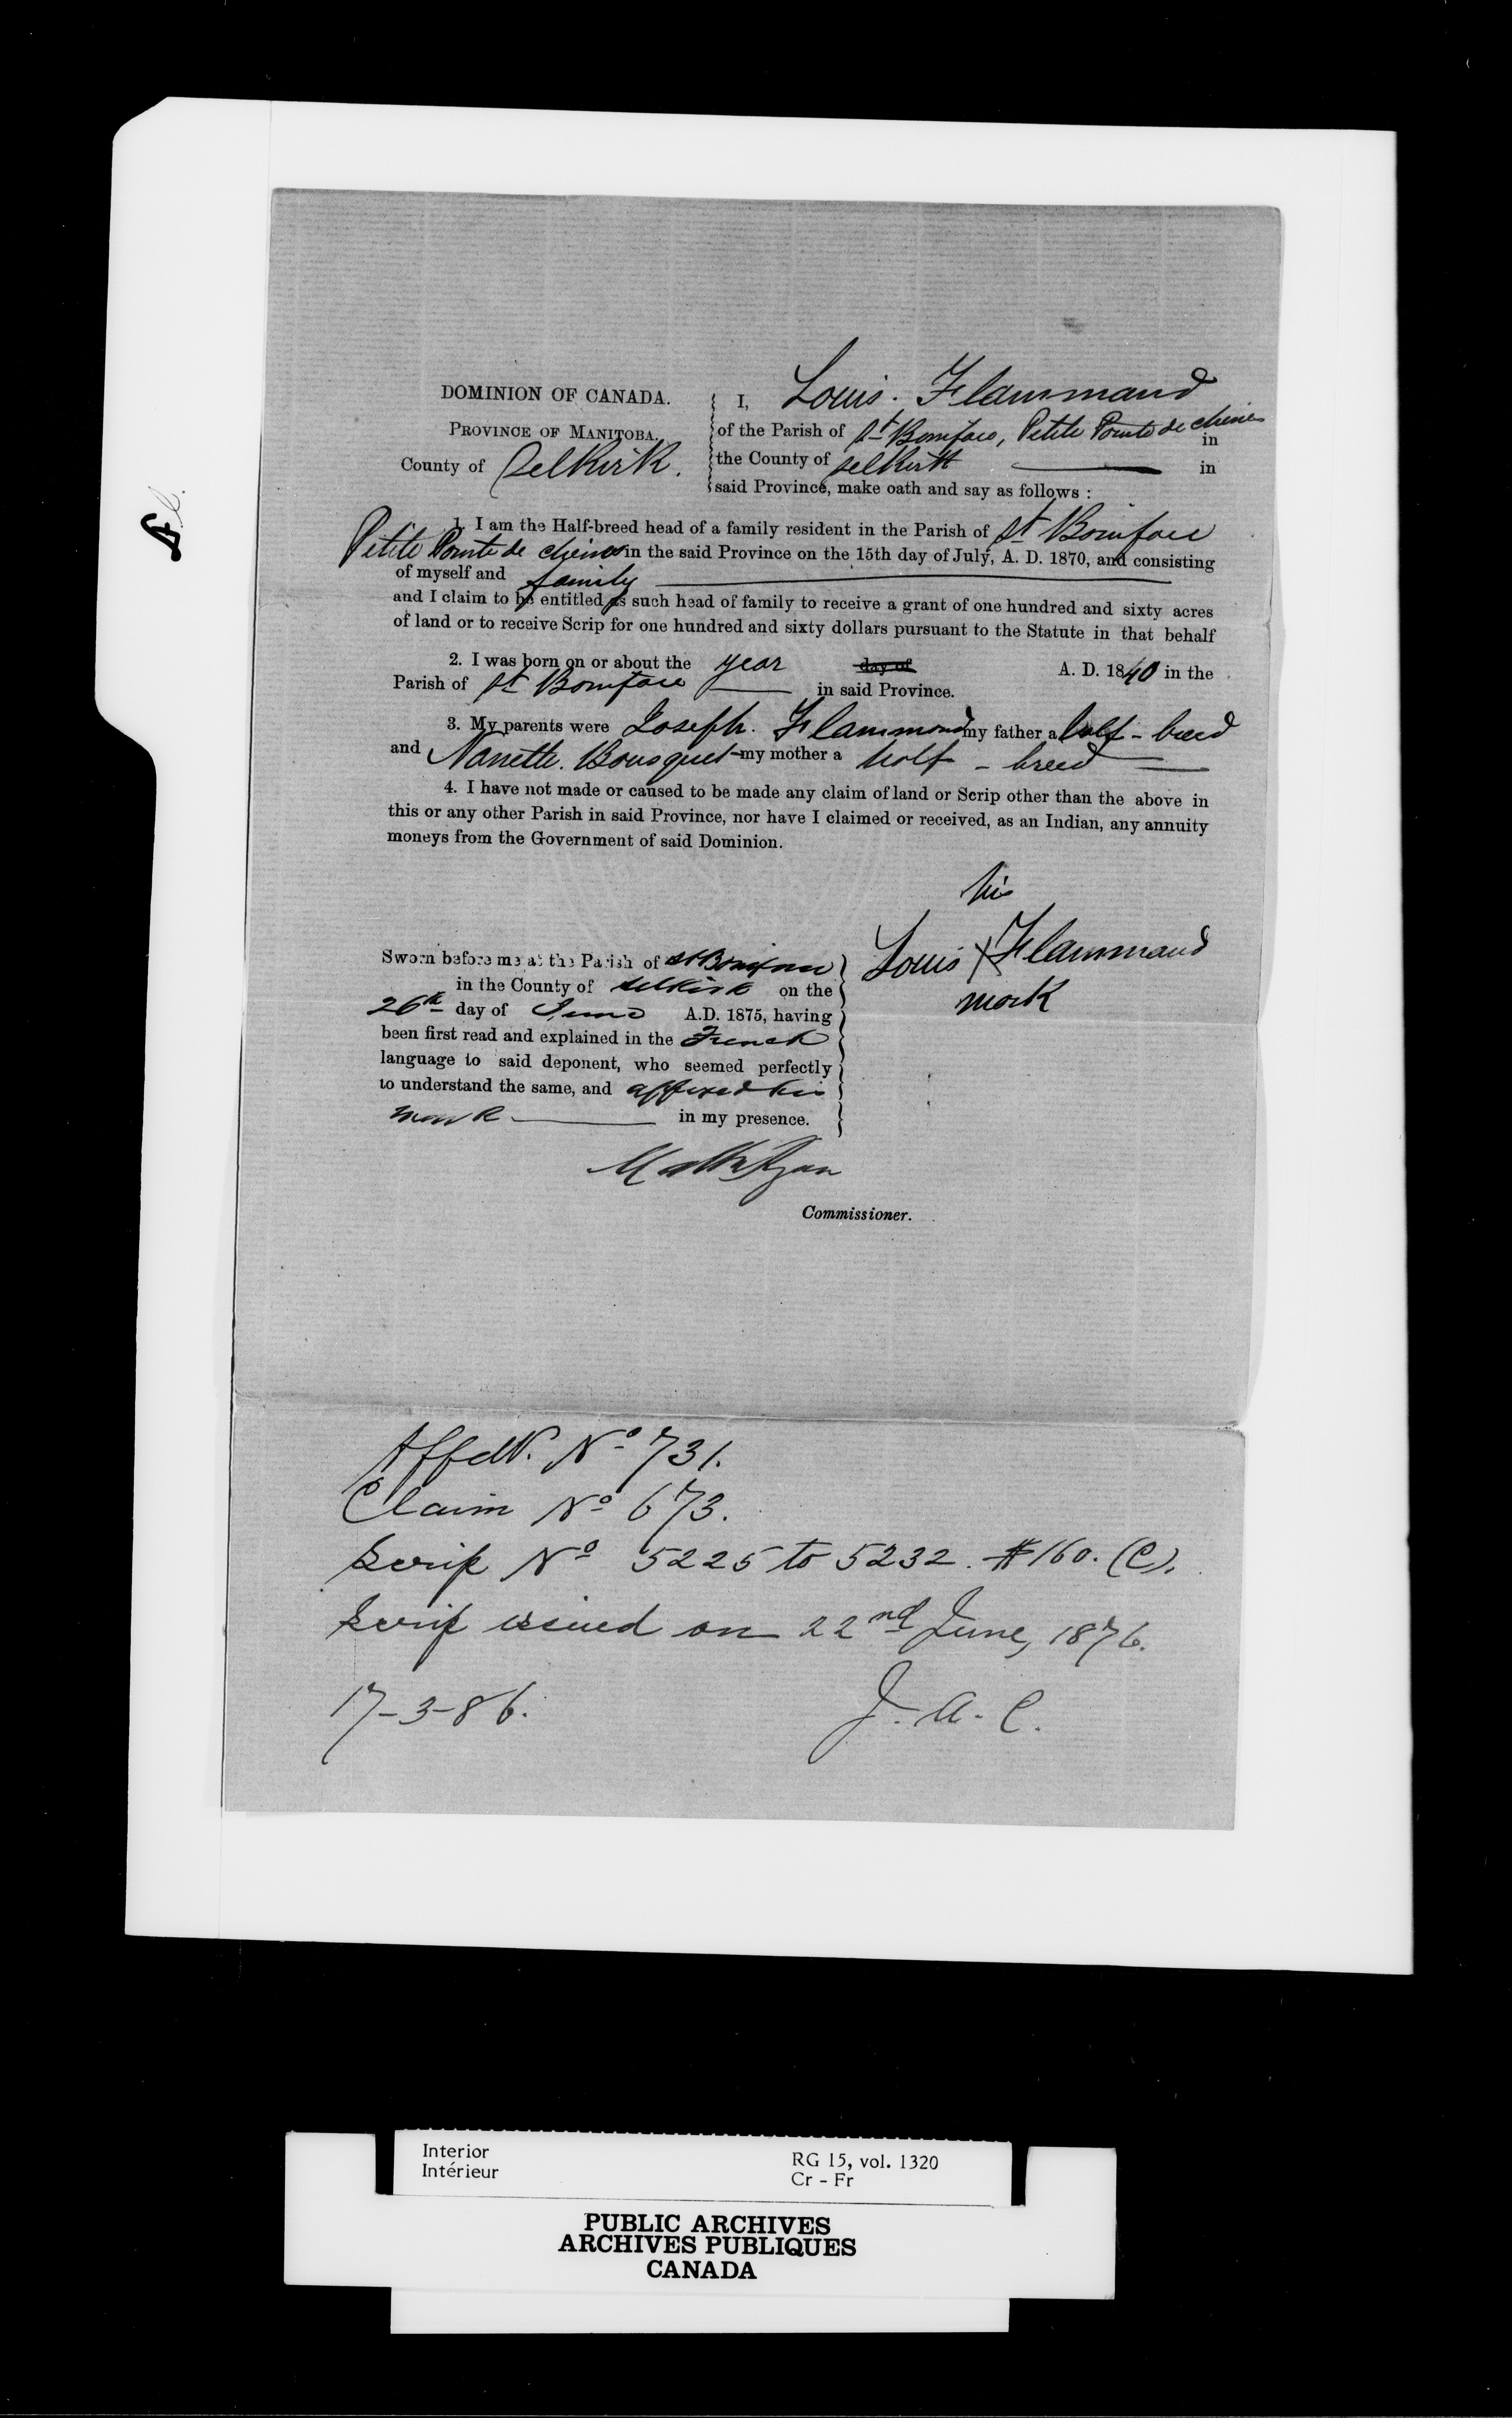 Fl.
DOMINION OF CANADA.
PROVINCE OF MANITOBA.
County of Selkirk.
I, Louis. Flammand
of the Parish of St Boniface, Petite Pointe de chenes in
the County of Selkirk in
said Province, make oath and say as follows :
1. I am the Half-breed head of a family resident in the Parish of St Boniface
Petite Pointe de chenes in the said Province on the 15th day of July, A. D. 1870, and consisting
of myself and family
and I claim to be entitled as such head of family to receive a grant of one hundred and sixty acres
of land or to receive Scrip for one hundred and sixty dollars pursuant to the Statute in that behalf
2. I was born on or about the year day of A. D. 1840 in the
Parish of St Boniface in said Province.
3. My parents were Joseph. Flammond my father a half-breed
and Nanette. Bousquet my mother a half-breed
4. I have not made or caused to be made any claim of land or Scrip other than the above in
this or any other Parish in said Province, nor have I claimed or received, as an Indian, any annuity
moneys from the Government of said Dominion.
his
Louis X Flammand
mark
Sworn before me at the Parish of St Boniface
in the County of Selkirk on the
26th day of June A.D. 1875, having
been first read and explained in the French
language to said deponent, who seemed perfectly
to understand the same, and affixed his
mark in my presence.
Matt Ryan
Commissioner.
Affdt. No 731.
Claim No 673.
Scrip No 5225 to 5232. $160. (C).
Scrip issued on 22nd June, 1876.
17-3-86. J. A. C.
Interior
Intérieur
RG 15, vol. 1320
Cr - Fr
PUBLIC ARCHIVES
ARCHIVES PUBLIQUES
CANADA